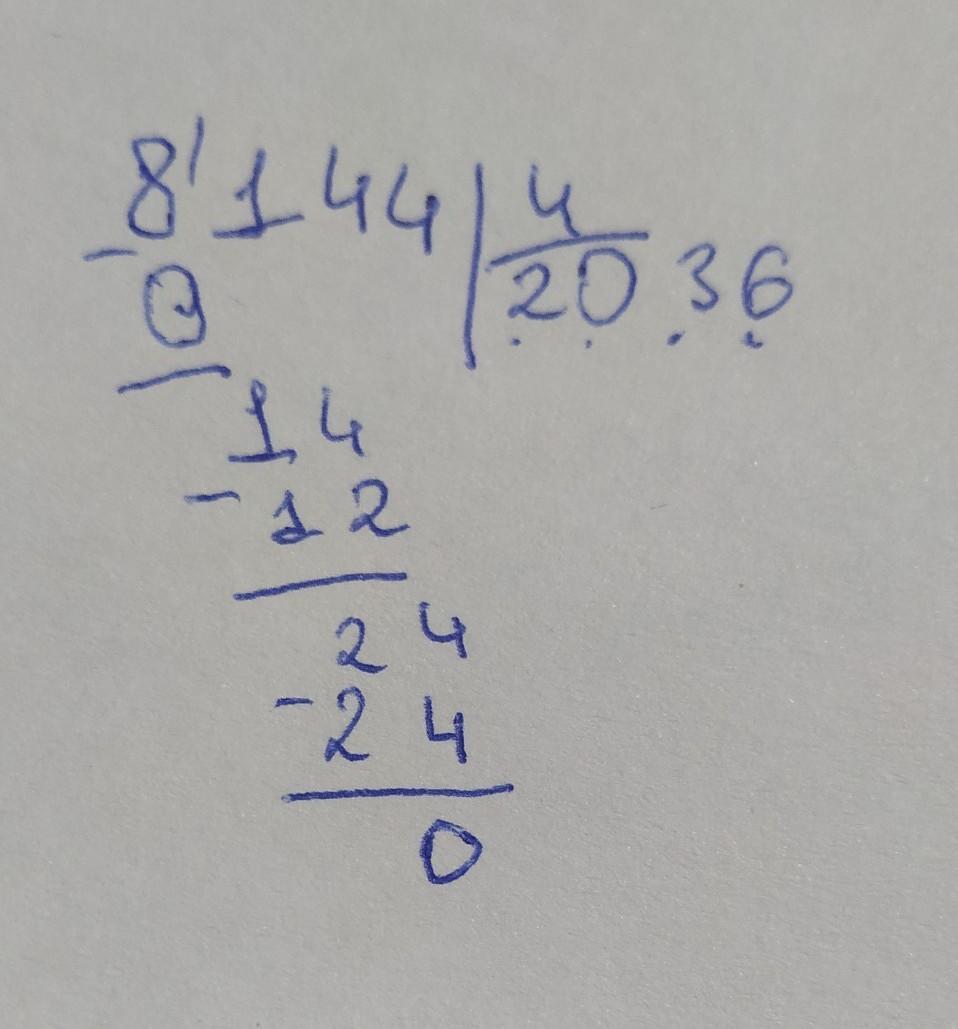 8'144 4
- 2036
14
- 12
24
- 24
0